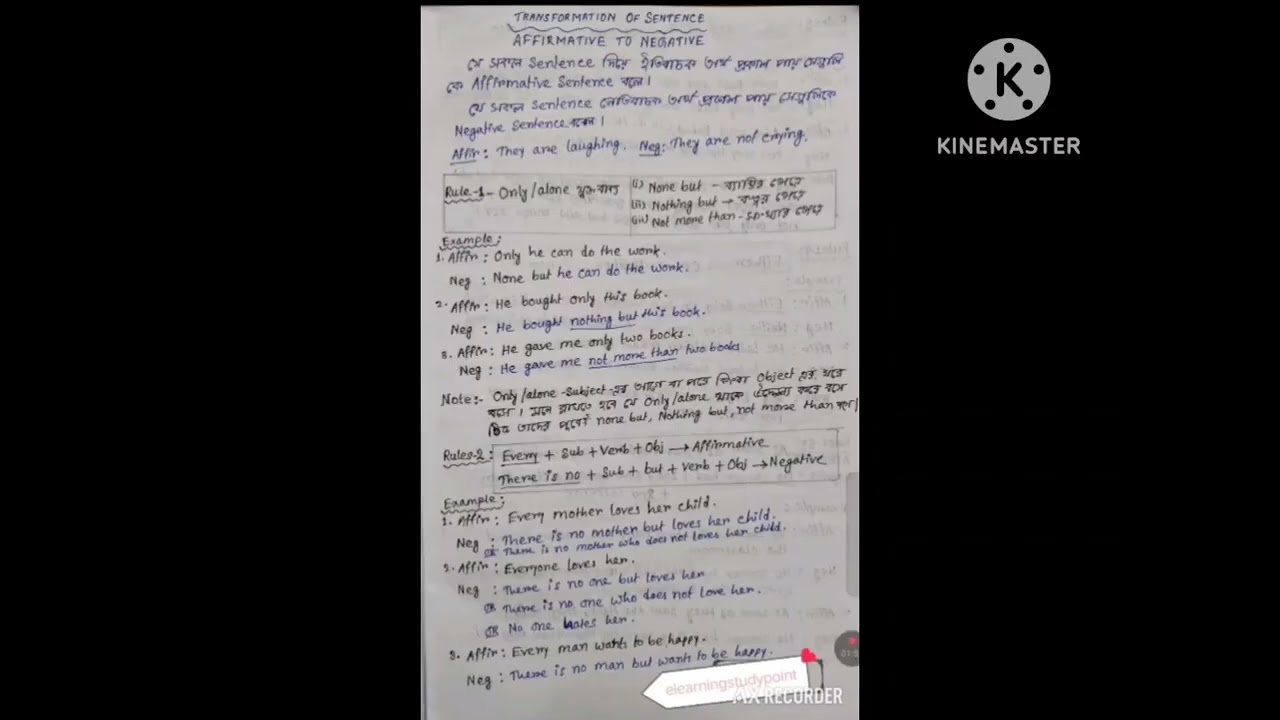 TRANSFORMATION OF SENTENCE
AFFIRMATIVE TO NEGATIVE
যে সকল Sentence দিয়ে ইতিবাচক অর্থ প্রকাশ পায় সেগুলি
কে Affirmative Sentence বলে।
যে সকল Sentence নেতিবাচক অর্থ প্রকাশ পায় সেগুলিকে
Negative Sentence বলে।
Affir: They are laughing. Neg: They are not crying.
Rule-1 - Only/alone যুক্ত বাক্য
(i) None but - ব্যাক্তির ক্ষেত্রে
(ii) Nothing but → বস্তুর ক্ষেত্রে
(iii) Not more than - সংখ্যার ক্ষেত্রে
Example:
1. Affir: Only he can do the work.
Neg: None but he can do the work.
2. Affir: He bought only this book.
Neg: He bought nothing but this book.
3. Affir: He gave me only two books.
Neg: He gave me not more than two books
Note:- Only/alone -Subject-এর আগে বা পরে কিংবা Object এর
বসে। মনে রাখতে হবে যে Only/alone থাকে
ঠিক তাদের পূর্বেই none but, Nothing but, not more than বসে।
Rules-2: Every + Sub + Verb + Obj → Affirmative
There is no + Sub + but + verb + Obj → Negative
Example:
1. Affir: Every mother loves her child.
Neg: There is no mother but loves her child.
OR There is no mother who does not loves her child.
2. Affir: Everyone loves her.
Neg: There is no one but loves her
OR There is no one who does not love her.
OR No one hates her.
3. Affir: Every man wants to be happy.
Neg: There is no man but wants to be happy.
elearningstudypoint
RECORDER
K
KINEMASTER